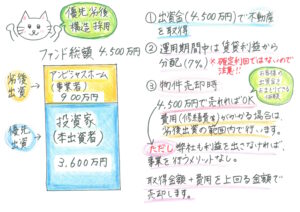 優先劣後
構造 採用
ファンド総額 4.500万円
劣後
出資
アンビシャスホーム
(事業者)
900万円
優先
出資
投資家
(本出資者)
3.600万円
① 出資金(4.500万円)で不動産
を取得
② 運用期間中は賃貸利益から
分配(7%) ※確定利回ではないので
注意!!
③ 物件売却時
4.500万円で売れればOK
費用(修繕費等)がかかる場合は、
劣後出資の範囲内で行います。
ただし 弊社も利益を出さなければ、
事業を行うメリットなし。
取得金額+費用を上回る金額で
売却します。
お客様の
出資金は